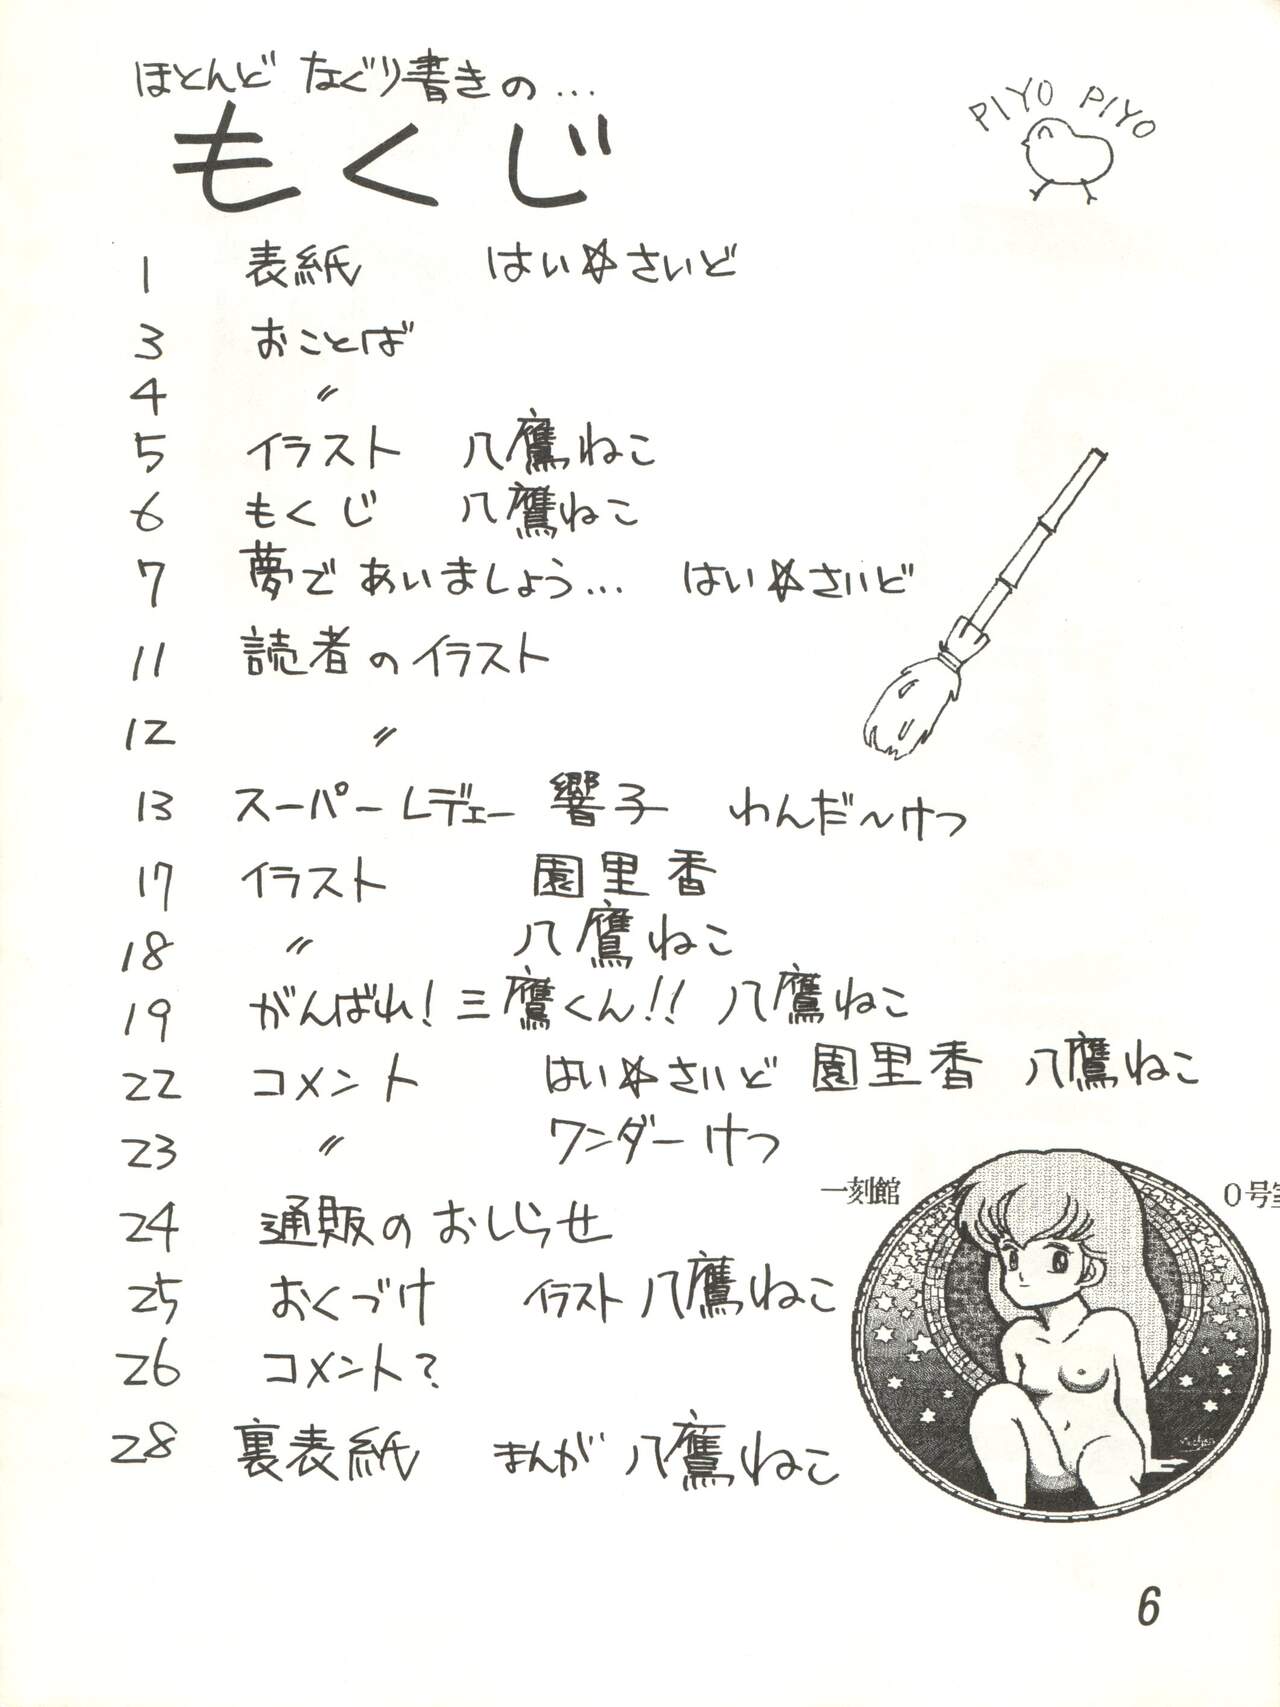 ほとんど なぐり書きの...
PIYO PIYO
もくじ
1 表紙 はい☆さいど
3 おことば
4 〃
5 イラスト 八鷹ねこ
6 もくじ 八鷹ねこ
7 夢であいましょう... はい☆さいど
11 読者のイラスト
12 〃
13 スーパーレディー 響子 わんだ〜けつ
17 イラスト 園里香
18 〃 八鷹ねこ
19 がんばれ!三鷹くん!! 八鷹ねこ
22 コメント はい☆さいど 園里香 八鷹ねこ
23 〃 ワンダーけつ
一刻館 0号室
24 通販のおしらせ
25 おくづけ イラスト 八鷹ねこ
26 コメント?
28 裏表紙 まんが 八鷹ねこ
6